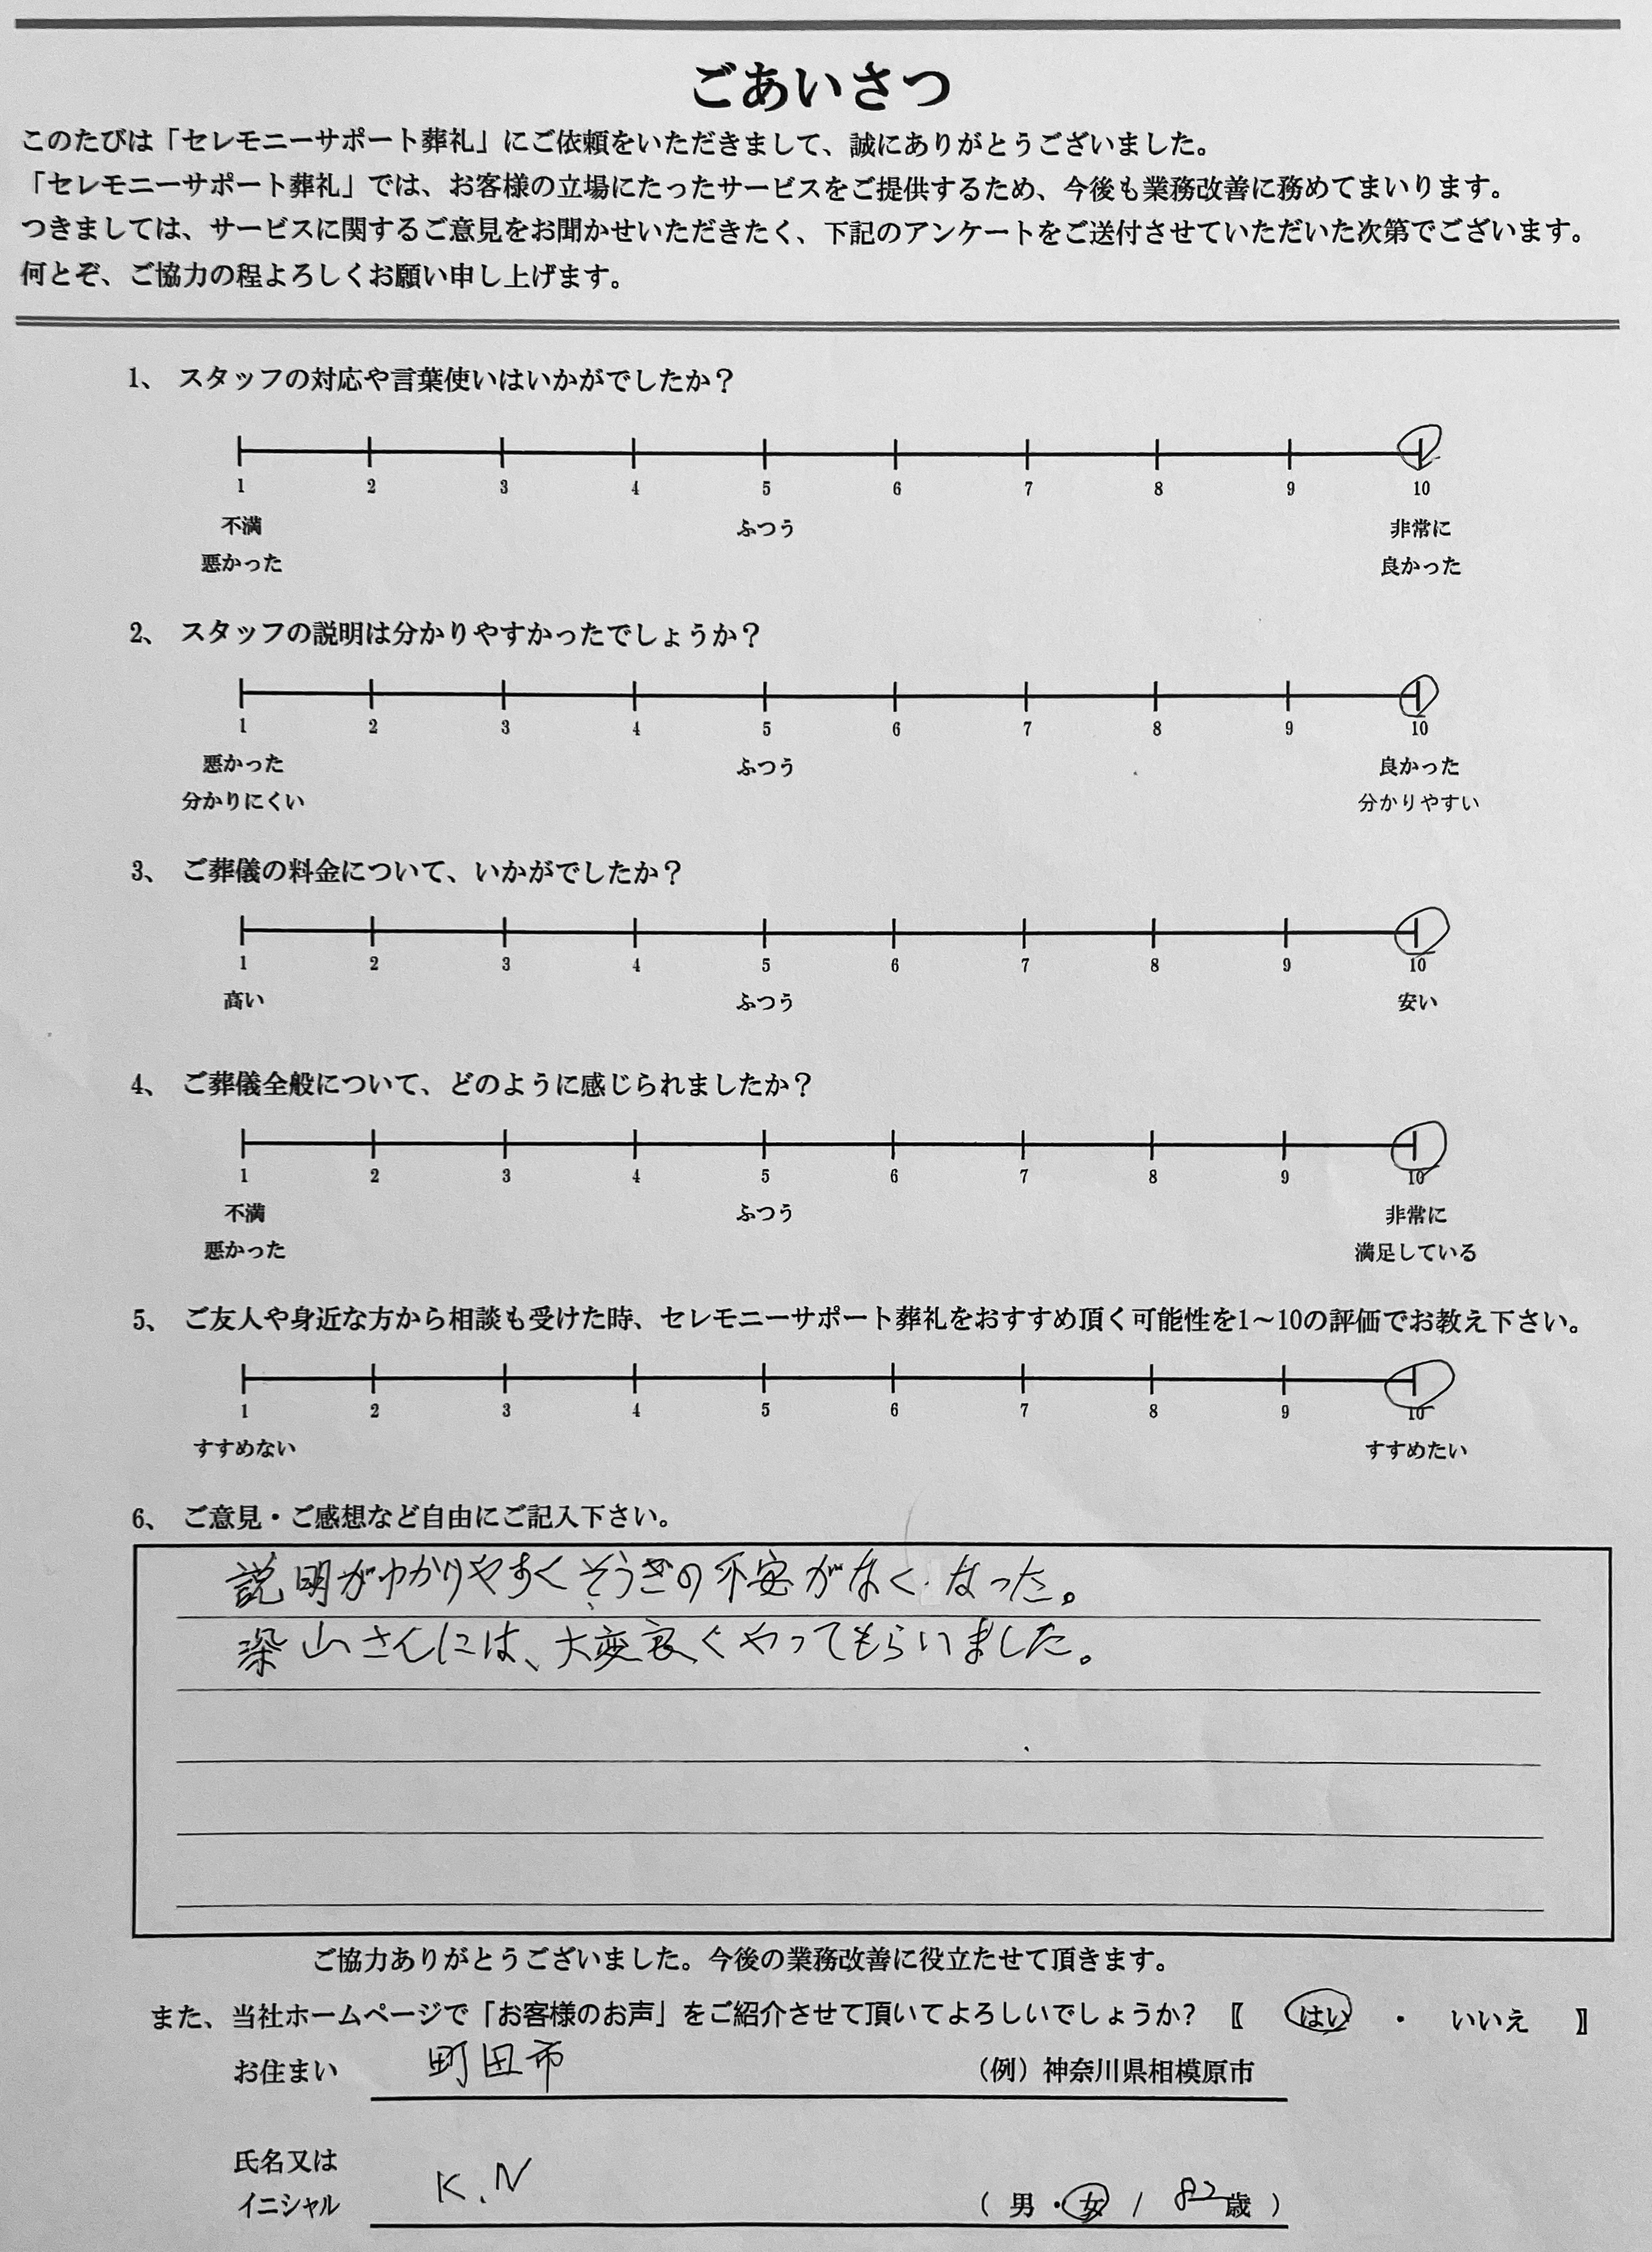 ごあいさつ
このたびは「セレモニーサポート葬礼」にご依頼をいただきまして、誠にありがとうございました。
「セレモニーサポート葬礼」では、お客様の立場にたったサービスをご提供するため、今後も業務改善に務めてまいります。
つきましては、サービスに関するご意見をお聞かせいただきたく、下記のアンケートをご送付させていただいた次第でございます。
何とぞ、ご協力の程よろしくお願い申し上げます。
1、 スタッフの対応や言葉使いはいかがでしたか?
1 2 3 4 5 6 7 8 9 10
不満 ふつう 非常に
悪かった 良かった
2、 スタッフの説明は分かりやすかったでしょうか?
1 2 3 4 5 6 7 8 9 10
悪かった ふつう 良かった
分かりにくい 分かりやすい
3、 ご葬儀の料金について、いかがでしたか?
1 2 3 4 5 6 7 8 9 10
高い ふつう 安い
4、 ご葬儀全般について、どのように感じられましたか?
1 2 3 4 5 6 7 8 9 10
不満 ふつう 非常に
悪かった 満足している
5、 ご友人や身近な方から相談も受けた時、セレモニーサポート葬礼をおすすめ頂く可能性を1～10の評価でお教え下さい。
1 2 3 4 5 6 7 8 9 10
すすめない すすめたい
6、 ご意見・ご感想など自由にご記入下さい。
説明がわかりやすくそうぎの不安がなくなった。
染山さんには、大変良くやってもらいました。
ご協力ありがとうございました。今後の業務改善に役立たせて頂きます。
また、当社ホームページで「お客様のお声」をご紹介させて頂いてよろしいでしょうか? 〖 はい ・ いいえ 〗
お住まい 町田市 （例）神奈川県相模原市
氏名又は
イニシャル K.N （ 男 ・ 女 / 82歳 ）